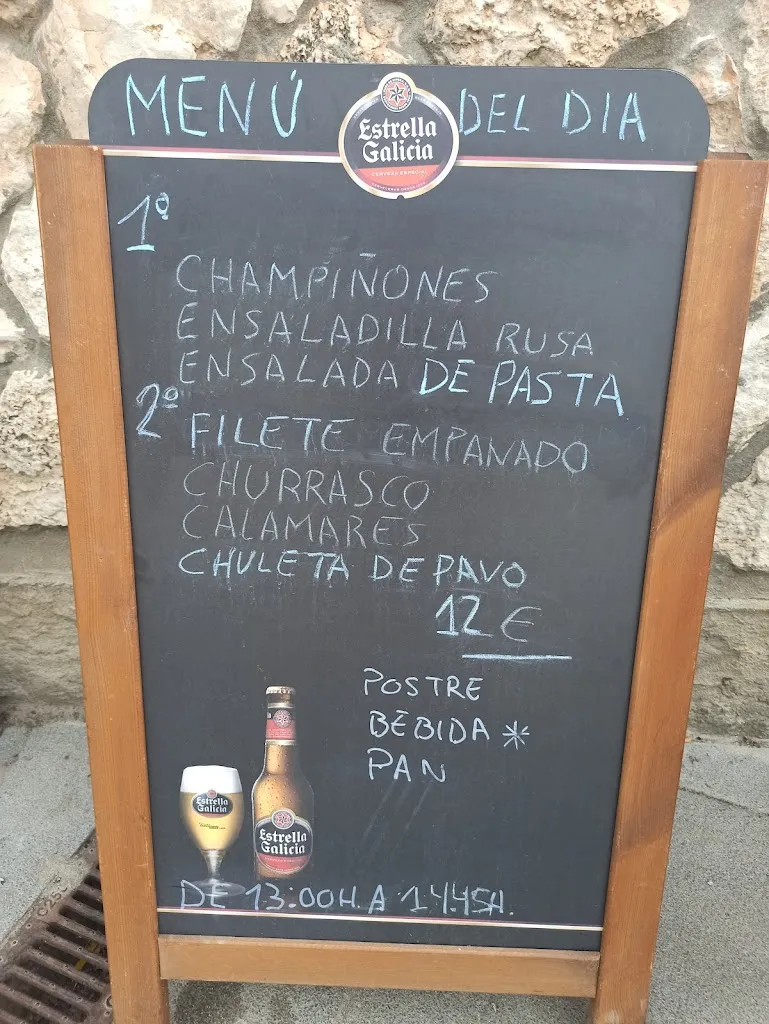 MENÚ DEL DIA
Estrella
Galicia
CERVEZA ESPECIAL
1º
CHAMPIÑONES
ENSALADILLA RUSA
ENSALADA DE PASTA
2º FILETE EMPANADO
CHURRASCO
CALAMARES
CHULETA DE PAVO
12 €
POSTRE
BEBIDA *
PAN
Estrella
Galicia
Estrella
Galicia
DE 13:00H. A 14:45H.